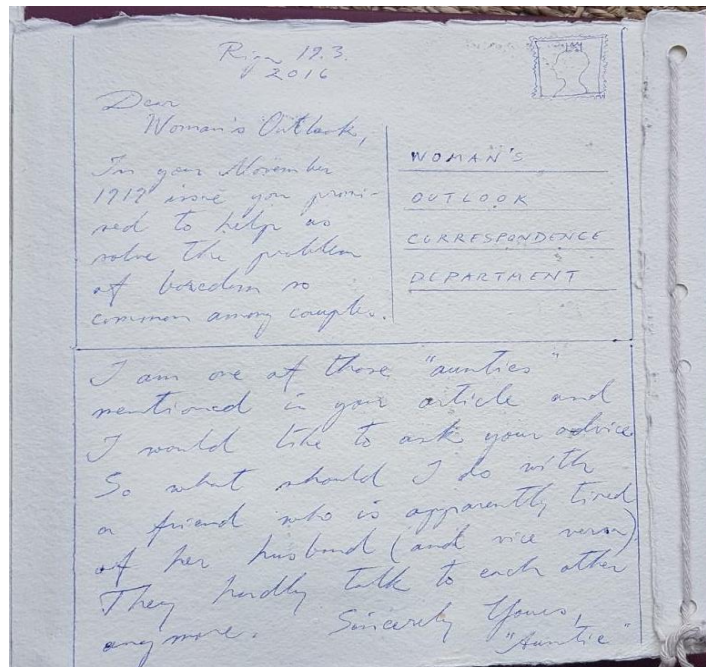 Riga 19.3.
2016
Dear
Woman's Outlook,
In your November
1919 issue you promi-
sed to help us
solve the problem
of boredom so
common among couples.
WOMAN'S
OUTLOOK
CORRESPONDENCE
DEPARTMENT
I am one of those "aunties"
mentioned in your article and
I would like to ask your advice
So what should I do with
a friend who is apparently tired
of her husband (and vice versa)
They hardly talk to each other
any more. Sincerely Yours,
"Auntie"